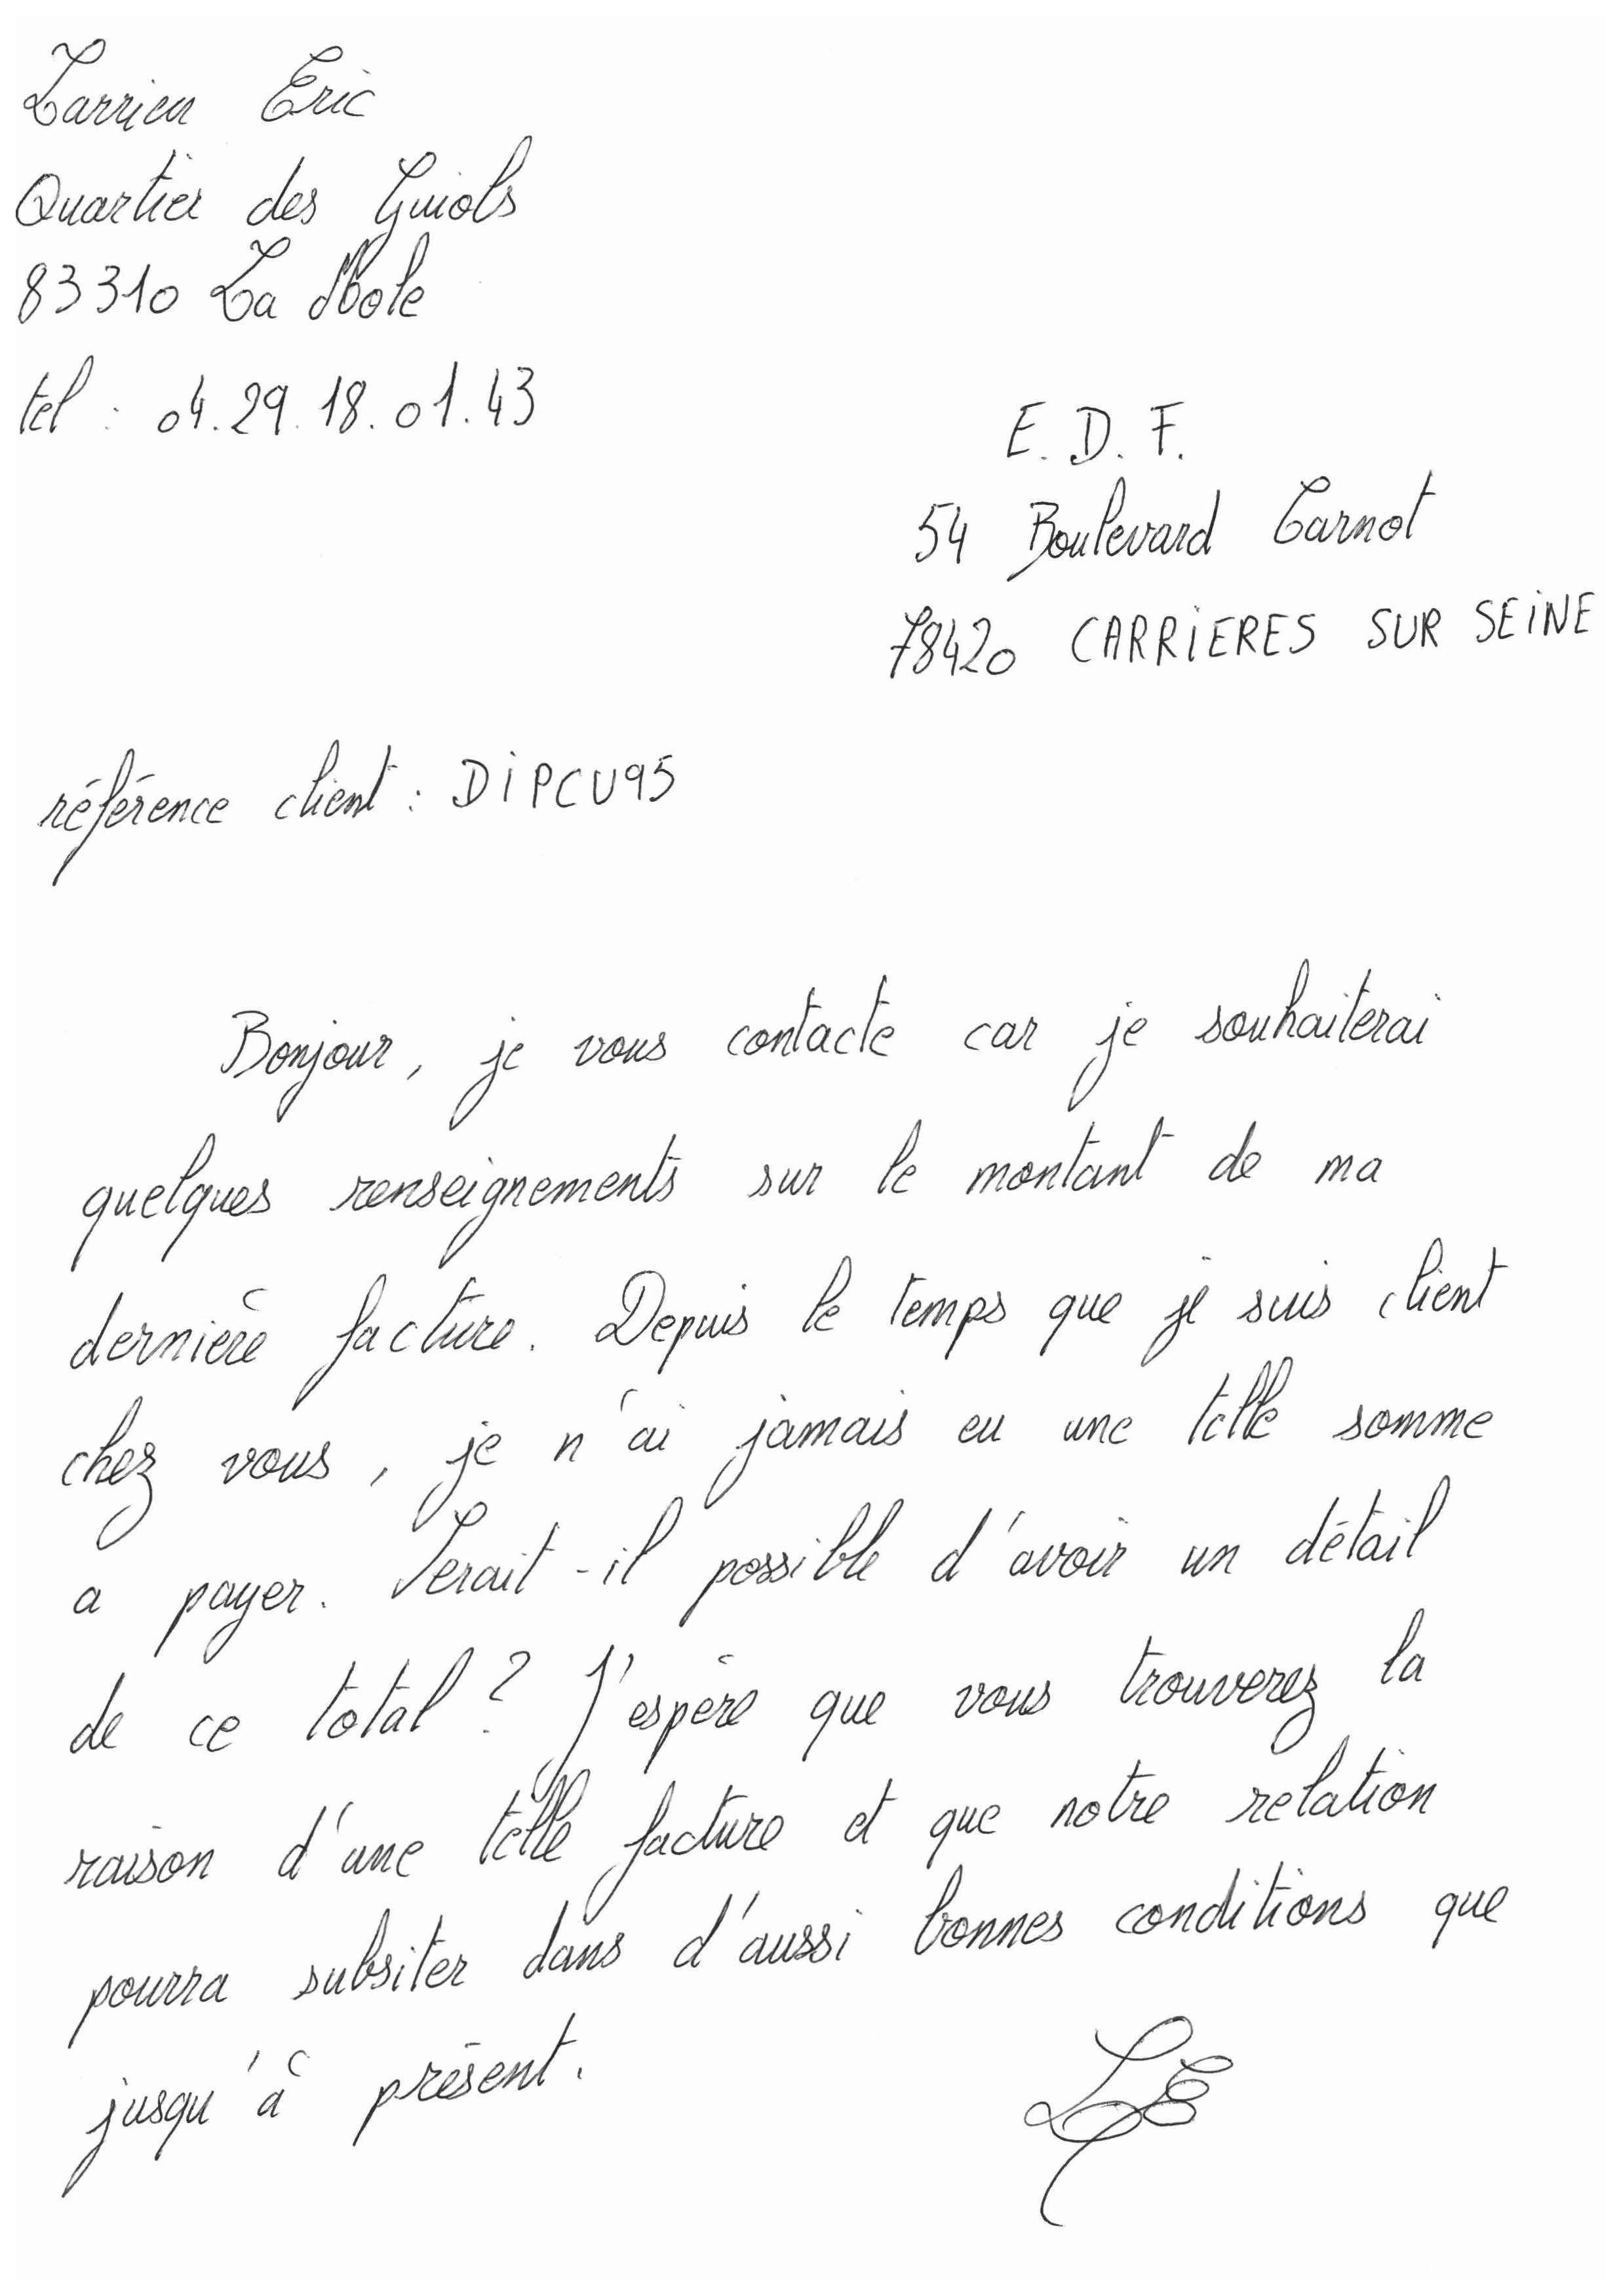 Larrieu Eric
Quartier des Guiols
83310 La Mole
tel : 04.29.18.01.43
E.D.F.
54 Boulevard Carnot
78420 CARRIERES SUR SEINE
référence client : DIPCU95
Bonjour, je vous contacte car je souhaiterai
quelques renseignements sur le montant de ma
dernière facture. Depuis le temps que je suis client
chez vous, je n'ai jamais eu une telle somme
a payer. Serait-il possible d'avoir un détail
de ce total ? J'espère que vous trouverez la
raison d'une telle facture et que notre relation
pourra subsiter dans d'aussi bonnes conditions que
jusqu'à présent.
LE